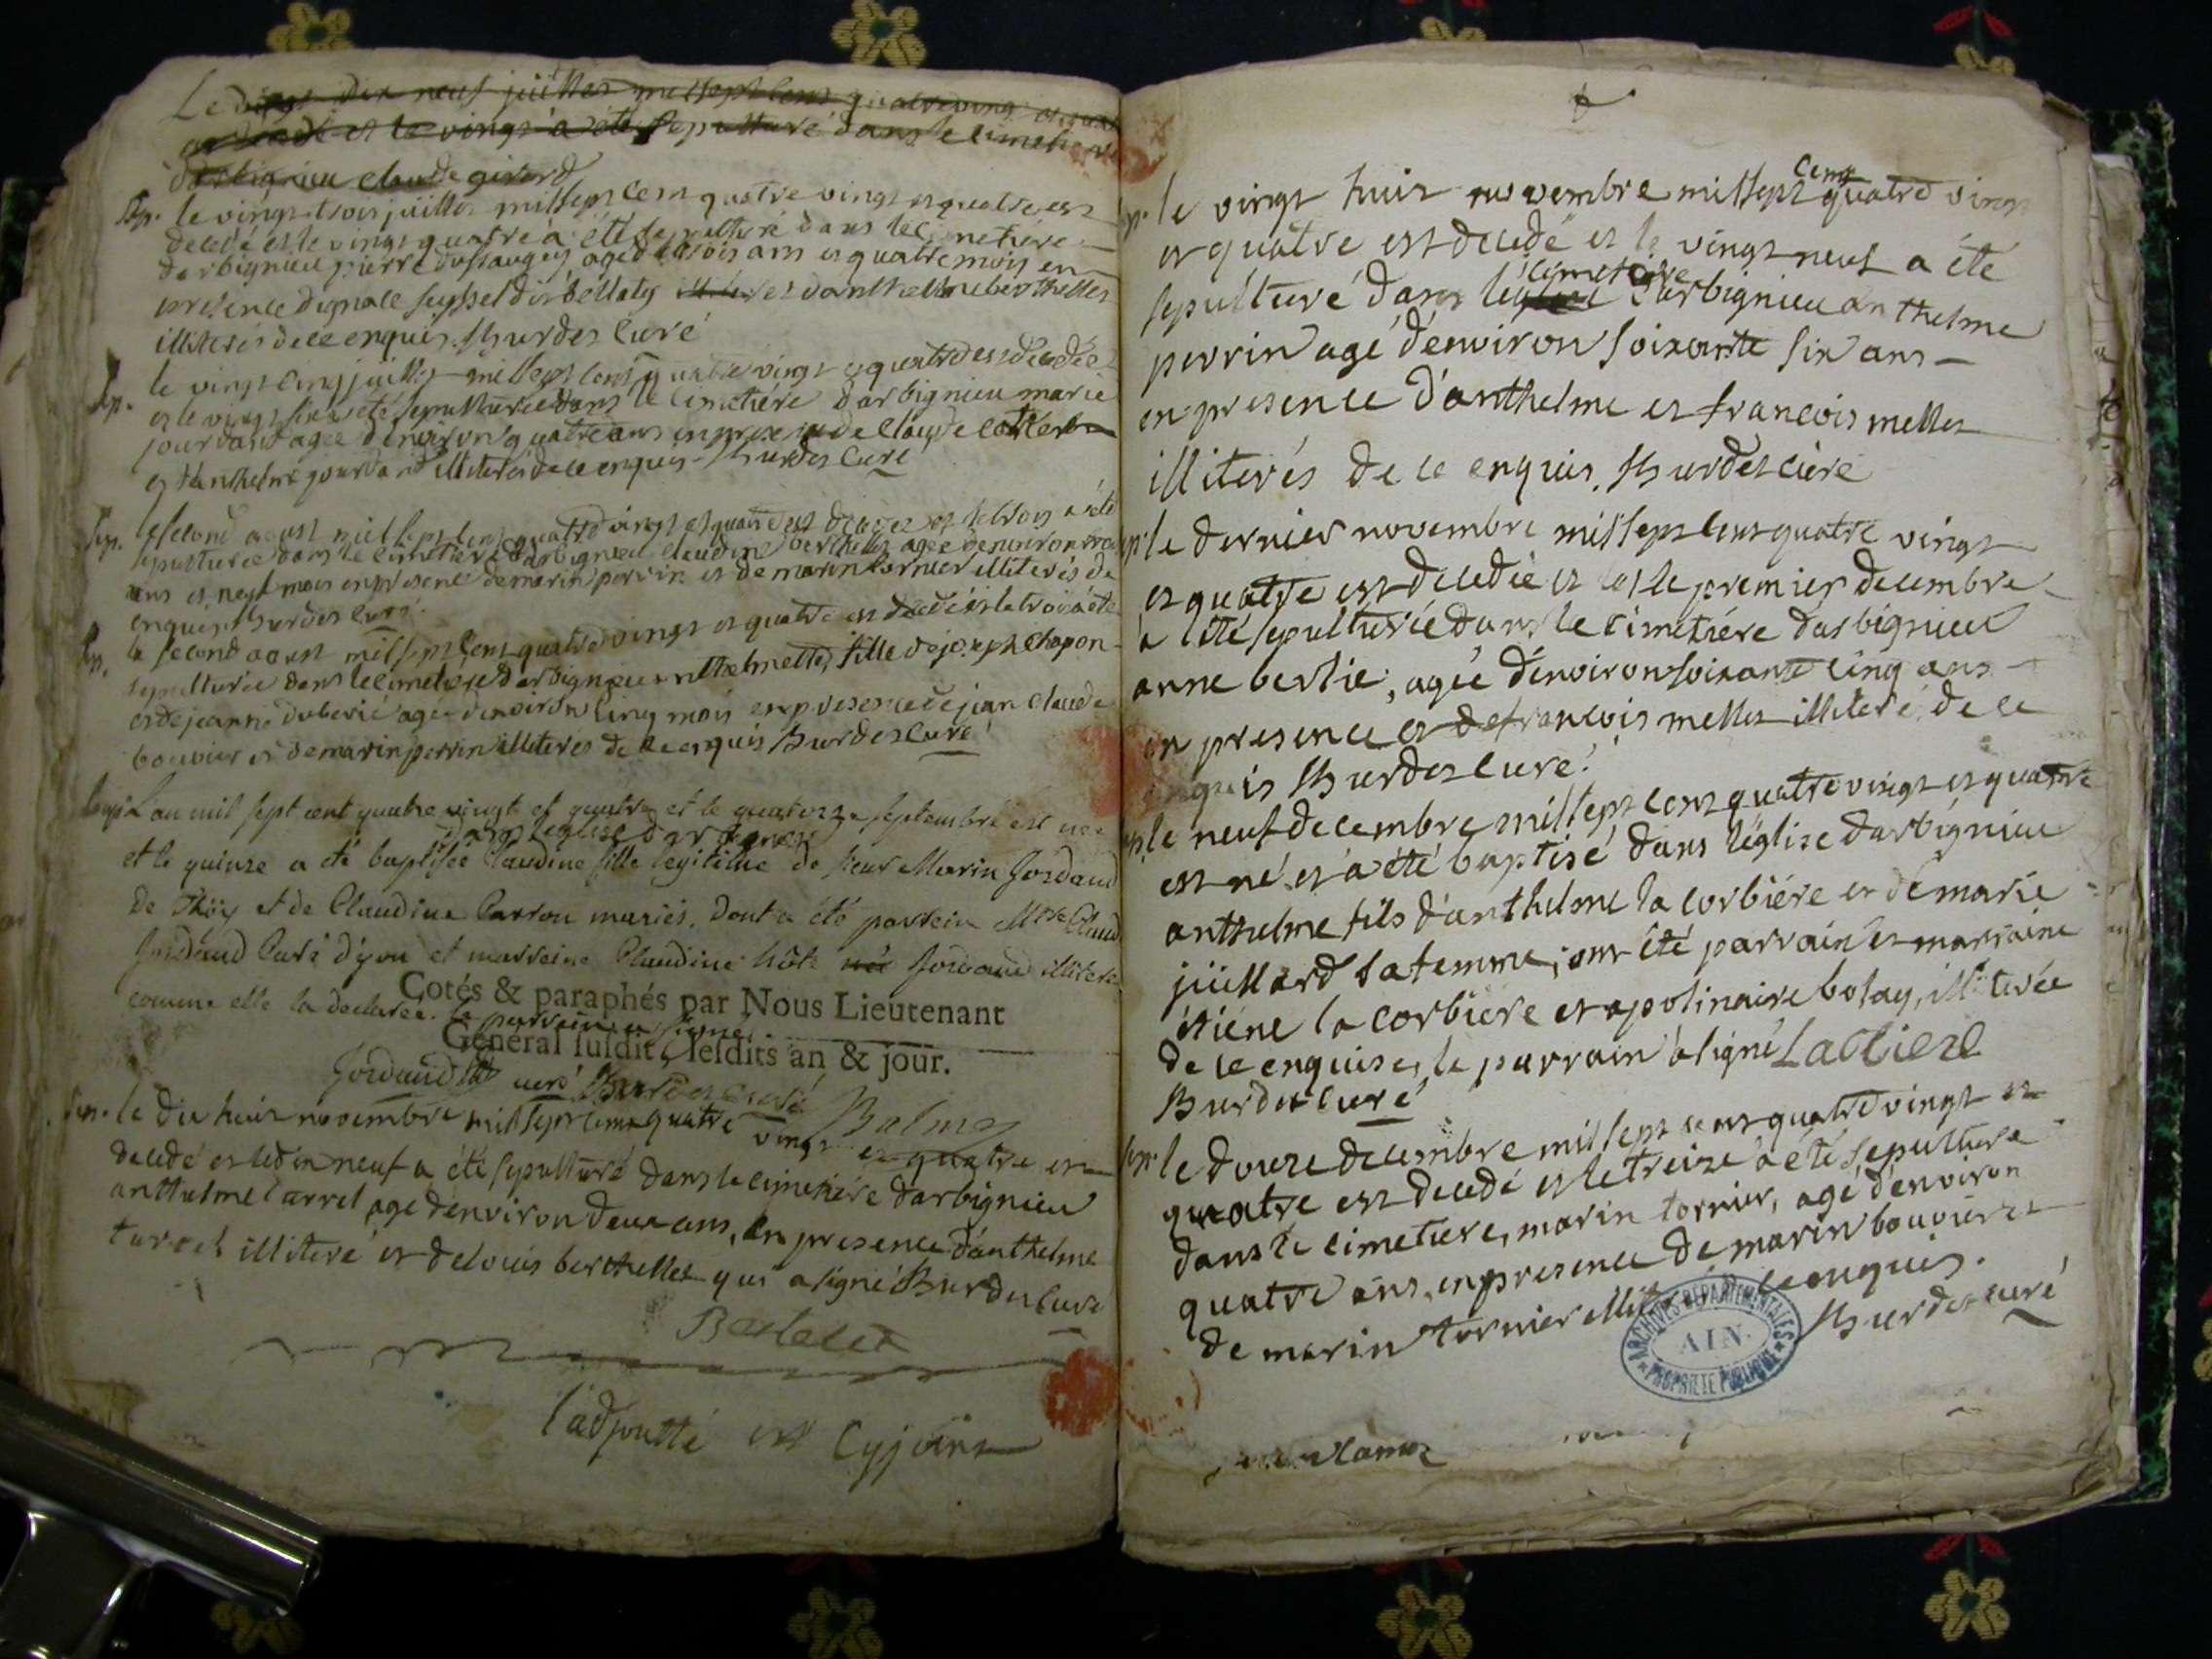 Le dix neuf juillet mil sept cens quatre vingt et
et le vingt a été sepulturé dans le cimetiere
darbignieu claude girard
Sep. le vingt trois juillet mil sept cens quatre vingt et quatre est
decedé et le vingt quatre a été sepulturé dans le cimetiére
darbignieu pierre dufsaugey agé de trois ans et quatre mois en
presence dignace seyssel dit bellaty et danthelme berthellet
illiterés de ce enquis. Burdet curé
Sep. le vingt cinq juillet mil sept cens quatre vingt et quatre est decedée
et le vingt six a été sepulturée dans le cimetiére darbignieu marie
jourdant agée denviron quatre ans en presence de claude
et danthelme jourdant illiterés de ce enquis Burdet Curé
Sep. le second aoust mil sept cens quatre vingt et quatre est decedée et le trois a été
sepulturée dans le cimetiere darbignieu claudine berthellet agée denviron trois
ans et neuf mois en presence de marin perrin et de marin tornier illiterés de
enquis Burdet curé.
Sep. le second aoust mil sept cens quatre vingt et quatre est decedée et le trois a été
sepulturée dans le cimetiere darbignieu anthelmette, fille de joseph chapon
et de jeanne duberié agée denviron cinq mois en presence de jean claude
bouvier et de marin perrin illiterés de ce enquis Burdet curé
bapt L'an mil sept cent quatre vingt et quatre et le quatorze septembre est née
dans leglise darbignieu
et le quinze a été baptisée Claudine fille legitime de sieur Marin Jordand
de Thöy et de Claudine Carron mariés. Dont a été parrein Mre Claud
Jordand Curé d'yon et marreine Claudine hôte née Jordand illiterée
comme elle la declaree. le parrein a signé.
Cotés & paraphés par Nous Lieutenant
Général susdit, lesdits an & jour.
Jordand curé Burdet curé
Balme
Sep. le dix huit novembre mil sept cens quatre vingt et quatre est
decedé et le dix neuf a été sepulturé dans le cimetiére darbignieu
anthelme tarrel agé denviron deux ans, en presence danthelme
tarrel illiteré et de louis berthellet qui a signé Burdet Curé
Bertelet
l'adjoutté est cyjoint
Sep. le vingt huit novembre mil sept cens quatre vingt
et quatre est decedé et le vingt neuf a été
sepulturé dans cimetiére darbignieu anthelme
perrin agé d'environ soixante six ans
en presence d'anthelme et francois mellet
illiterés de ce enquis. Burdet curé
sep. le dernier novembre mil sept cens quatre vingt
et quatre est decedée et le premier decembre
a été sepulturée dans le cimetiére darbignieu
anne berlie, agée d'environ soixante cinq ans
en presence et de francois mellet illiteré de ce
enquis Burdet curé.
bap. le neuf decembre mil sept cens quatre vingt et quatre
est né et a été baptisé dans l'église darbignieu
anthelme fils d'anthelme la corbiére et de marie
juillard sa femme, ont été parrain et marraine
étiéne la corbiére et apolinaire bolay, illiterée
de ce enquise, le parrain a signé Lacbiere
Burdet curé
Sep. le douze decembre mil sept cens quatre vingt et
quatre est decedé et le treize a été sepulturé
dans le cimetiere, marin tornier, agé d'environ
quatre ans, en presence de marin bouvier et
de marin tornier enquis.
Burdet curé
ARCHIVES DEPARTEMENTALES
AIN
PROPRIETE PUBLIQUE